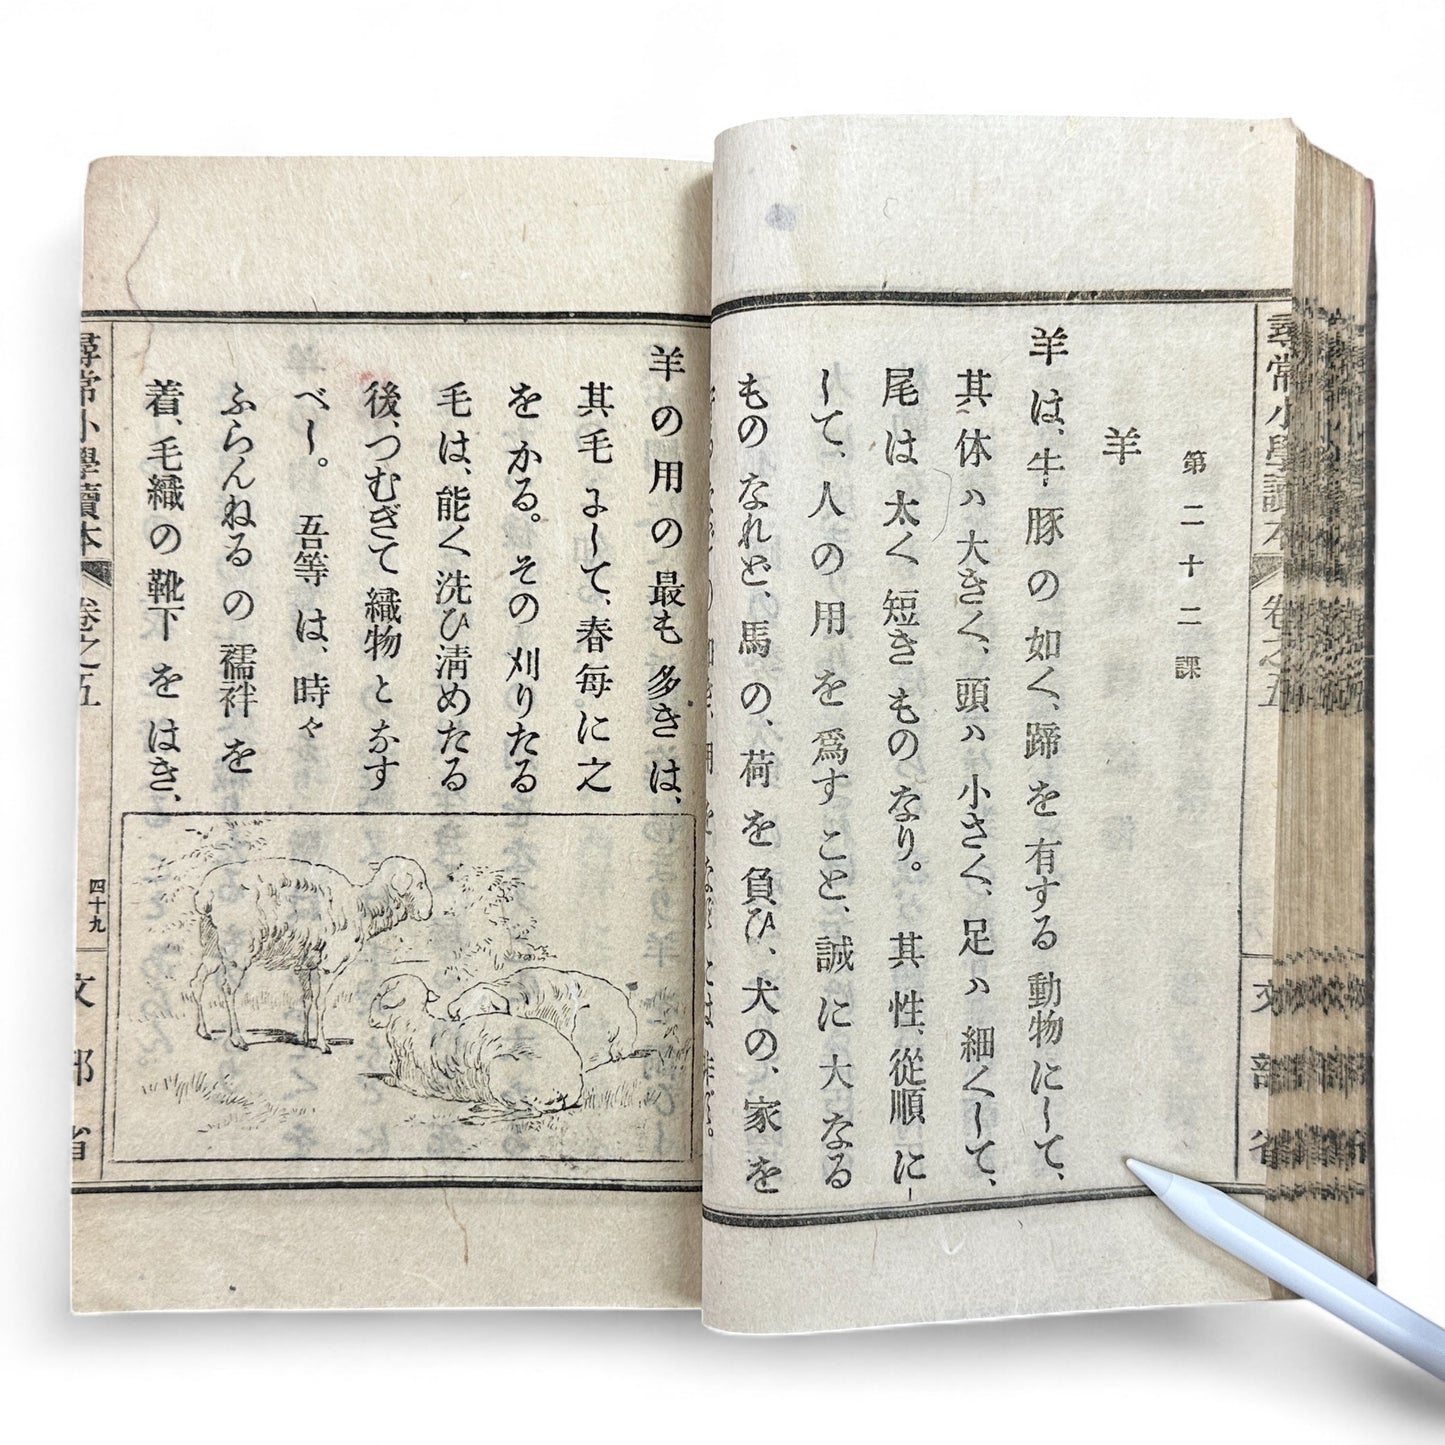 尋常小學讀本 卷之五 文部省
第二十二課
羊
羊は、牛豚の如く、蹄を有する動物にして、
其体ハ大きく、頭ハ小さく、足ハ細くして、
尾は太く短きものなり。其性、從順に
して、人の用を爲すこと、誠に大なる
ものなれど、馬の、荷を負ひ、犬の、家を
羊の用の最も多きは、
其毛にして、春每に之
をかる。その刈りたる
毛は、能く洗ひ淸めたる
後、つむぎて織物となす
べし。吾等は、時々
ふらんねるの襦袢を
着、毛織の靴下をはき、
尋常小學讀本 卷之五 四十九 文部省